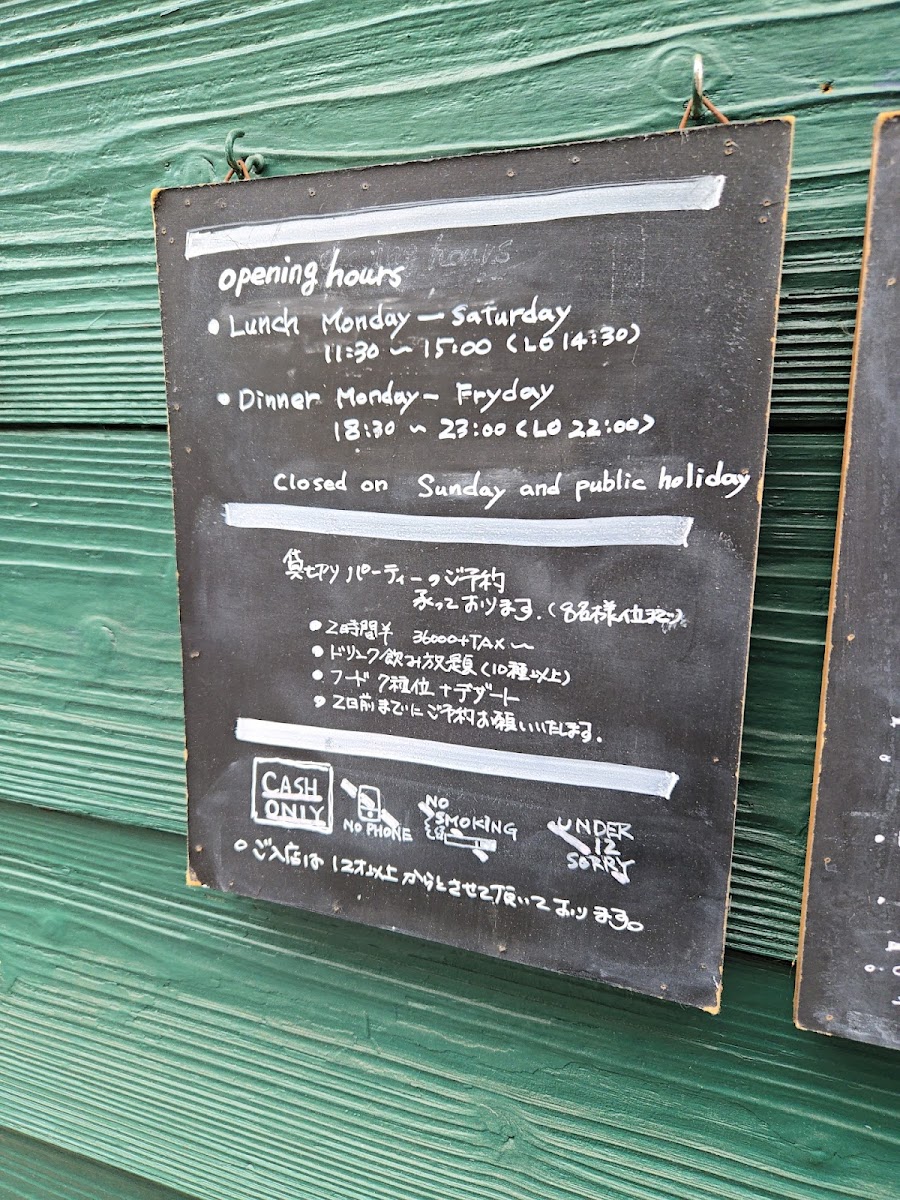 opening hours
• Lunch Monday — Saturday
11:30 ~ 15:00 (LO 14:30)
• Dinner Monday — Fryday
18:30 ~ 23:00 (LO 22:00)
Closed on Sunday and public holiday
貸切りパーティーのご予約
承っております.(8名様位まで)
• 2時間半 36000+TAX~
• ドリンク飲み放題(10種以上)
• フード 7種位+デザート
• 2日前までにご予約お願いいたします.
CASH ONLY
NO PHONE
NO SMOKING
UNDER 12 SORRY
○ ご入店は 12才以上からとさせて頂いております。